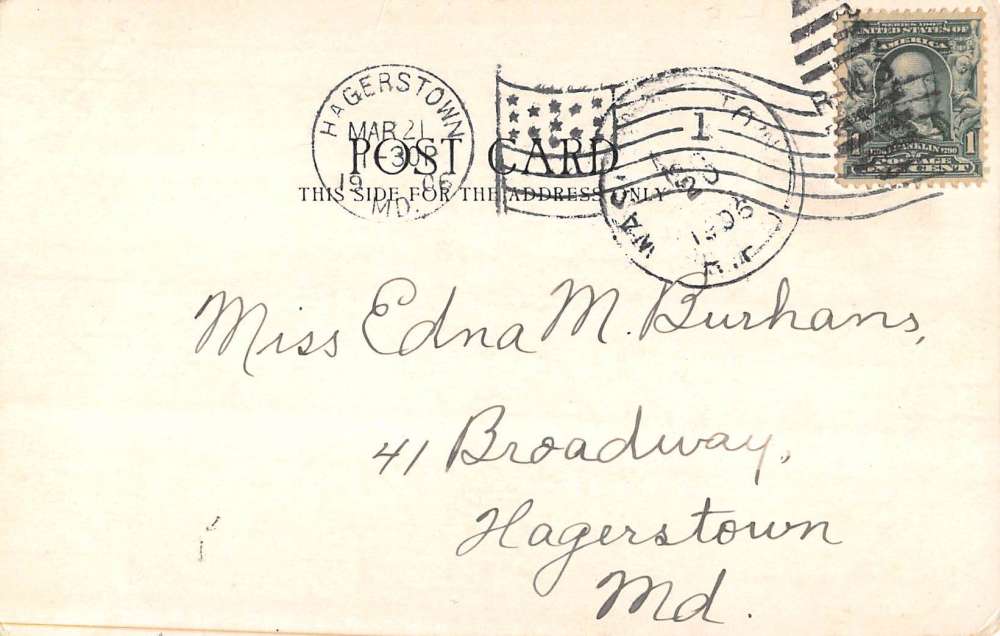 HAGERSTOWN
MAR 21
-30
1906
MD.
POST CARD
THIS SIDE FOR THE ADDRESS ONLY
1
1906
SERIES 1902
UNITED STATES OF
AMERICA
FRANKLIN
POSTAGE
1 ONE CENT 1
Miss Edna M. Burhans,
41 Broadway,
Hagerstown
Md.